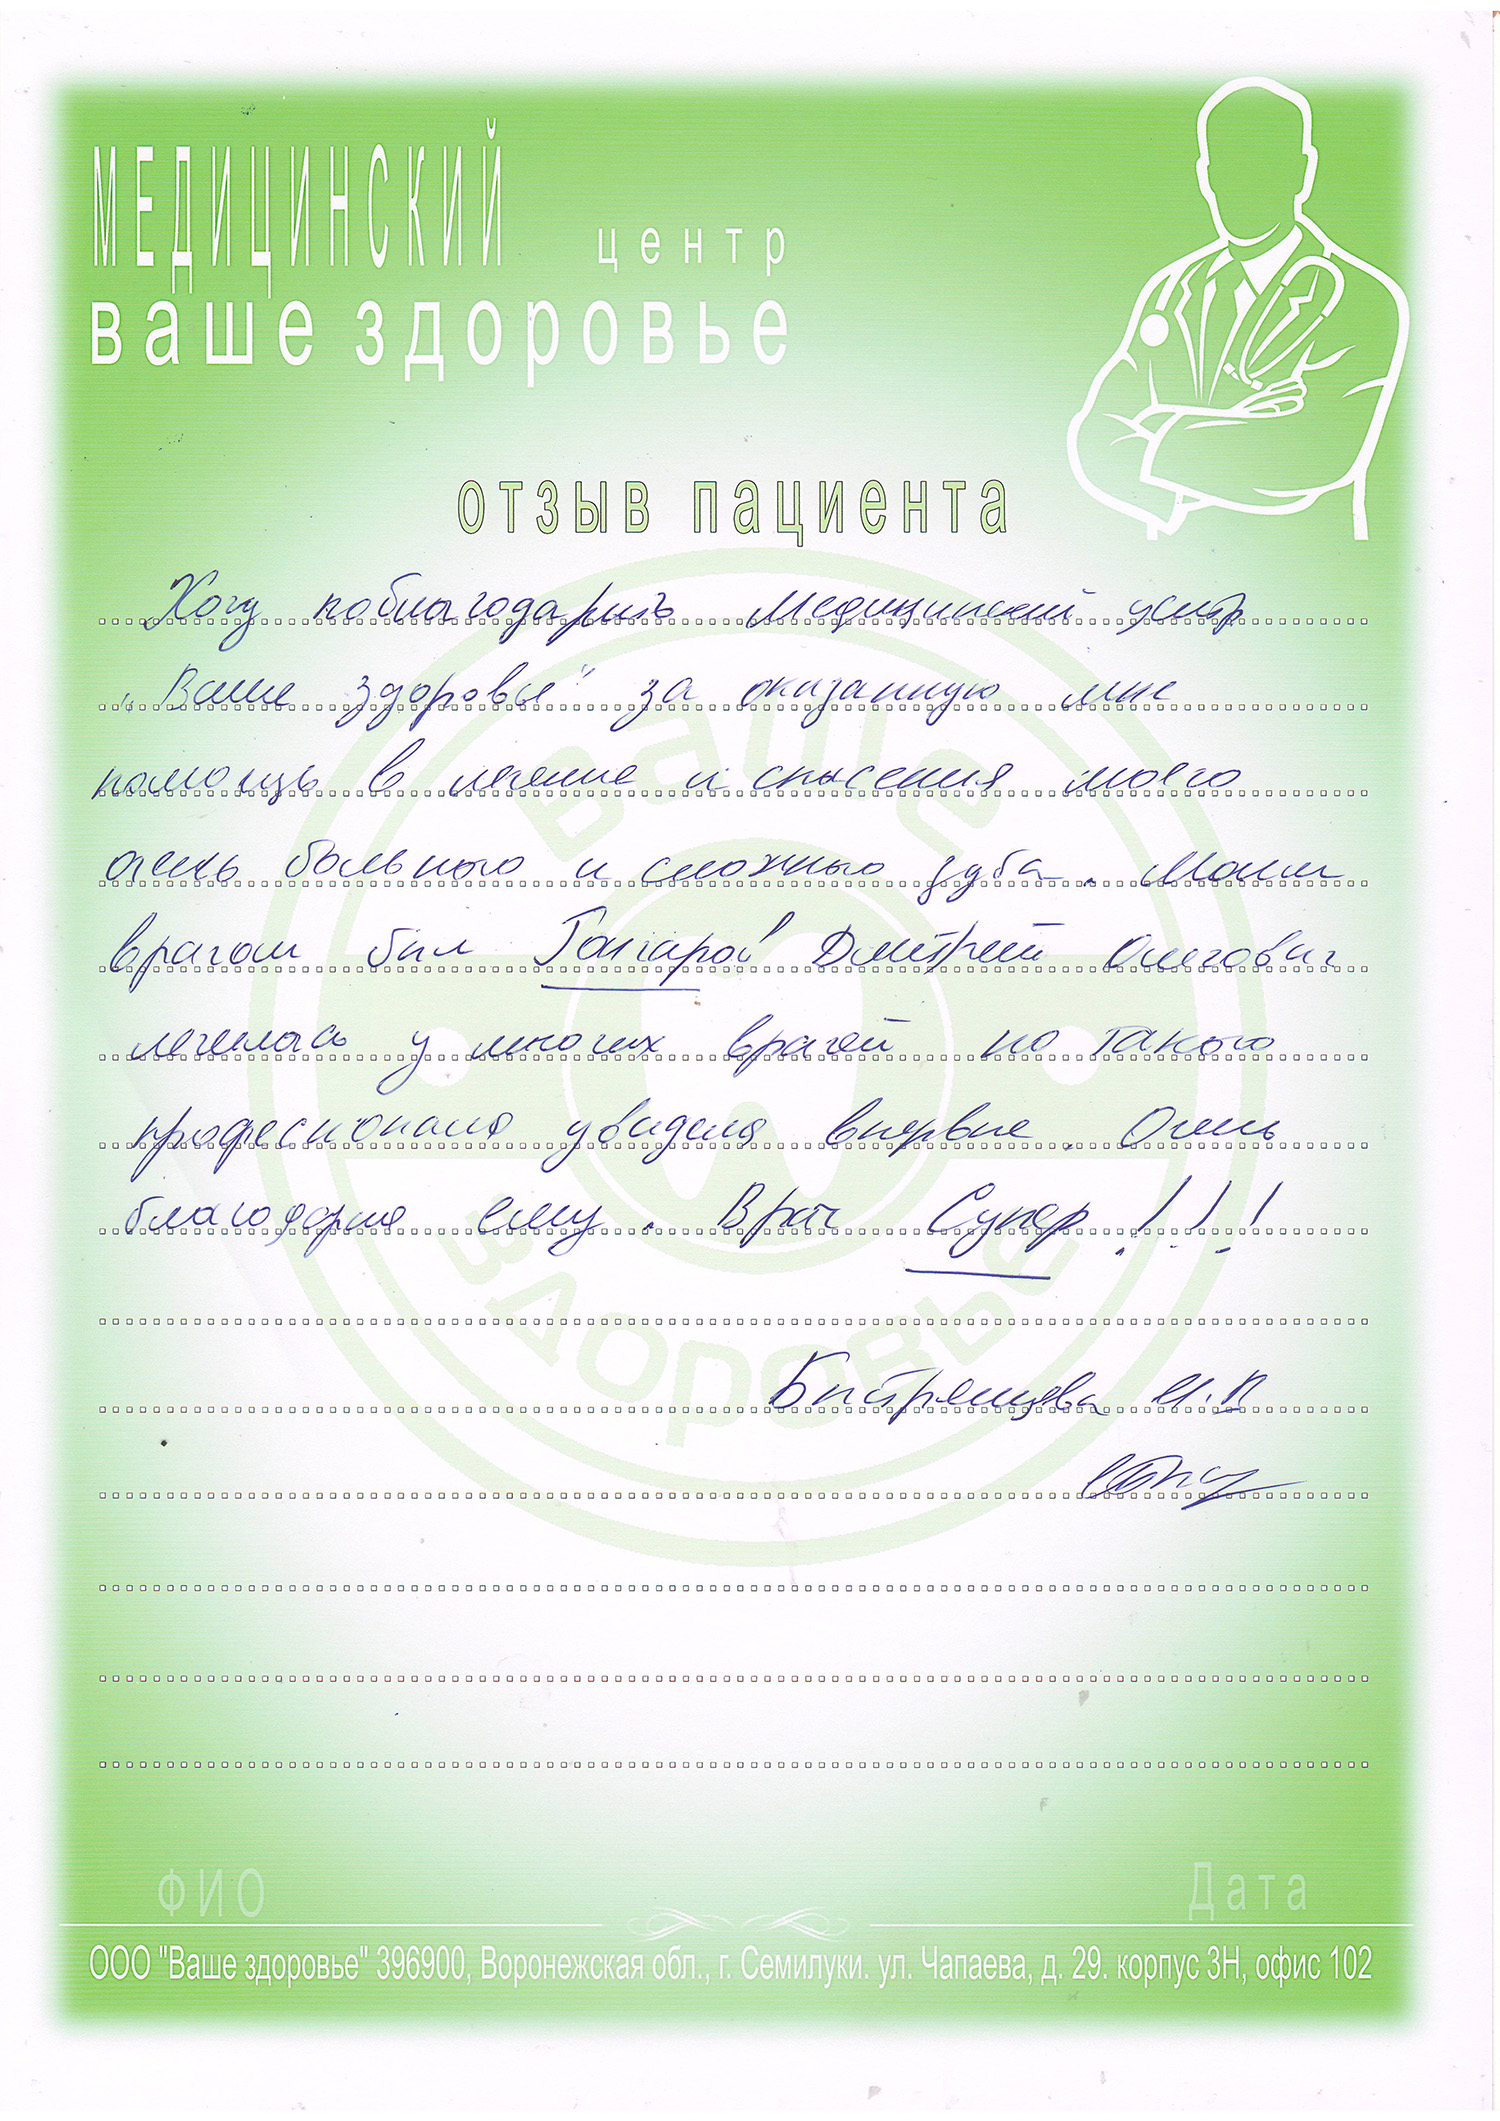 МЕДИЦИНСКИЙ центр
ваше здоровье
отзыв пациента
Хочу поблагодарить Медицинский центр
„Ваше здоровье" за оказанную мне
помощь в лечение и спасения моего
очень больного и сложного зуба. Моим
врачом был Гончаров Дмитрий Олегович
лечилась у многих врачей но такого
професионала увидела впервые. Очень
благодарна ему. Врач Супер!!!
И.В
ФИО
Дата
ООО "Ваше здоровье" 396900, Воронежская обл., г. Семилуки. ул. Чапаева, д. 29. корпус 3Н, офис 102
ваше
здоровье